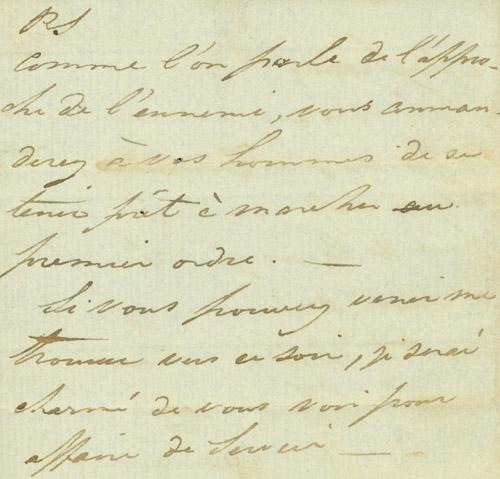 PS
comme l'on parle de l'appro-
che de l'ennemi, vous comman-
derez à vos hommes de se
tenir prêt à marcher au
premier ordre. —
Si vous pouvez venir me
trouver vers ce soir, je serai
charmé de vous voir pour
affaire de Service —